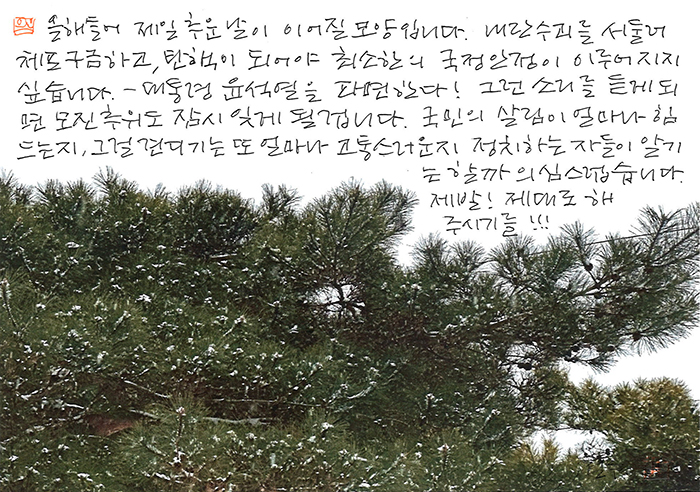 올해들어 제일 추운 날이 이어질 모양입니다. 내란수괴를 서둘러
체포 구금하고, 탄핵이 되어야 최소한의 국정안정이 이루어지지
싶습니다. – 대통령 윤석열을 파면한다! 그런 소리를 듣게 되
면 모진 추위도 잠시 잊게 될겁니다. 국민의 살림이 얼마나 힘
드는지, 그걸 견디기는 또 얼마나 고통스러운지 정치하는 자들이 알기
는 할까 의심스럽습니다.
제발! 제대로 해
주시기를!!!